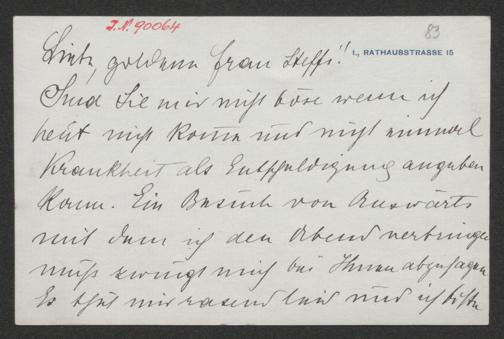 I.N. 90064
83
I., RATHAUSSTRASSE 15
Liebe, goldene Frau Steffi!
Sind Sie mir nicht böse wenn ich
heut nicht komme und nicht einmal
Krankheit als Entschuldigung angeben
kann. Ein Besuch von Auswärts
mit dem ich den Abend verbringen
muss zwingt mich bei Ihnen abzusagen
Es thut mir rasend leid und ich bitte